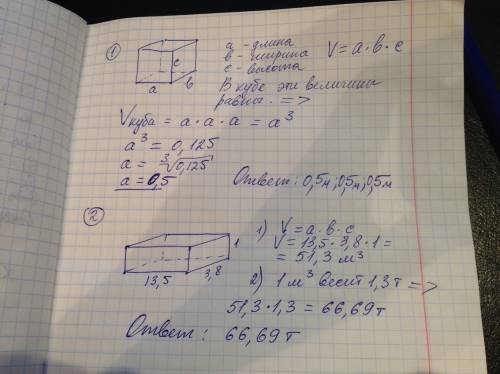 1
a - длина
в - ширина
c - высота
V = a · в · c
a
в
c
В кубе эти величины
равны. =>
Vкуба = a · a · a = a³
a³ = 0,125
a = ∛0,125
a = 0,5
Ответ: 0,5м; 0,5м; 0,5м
2
13,5
3,8
1
1) V = a · в · c
V = 13,5 · 3,8 · 1 =
= 51,3 м³
2) 1 м³ весит 1,3 т =>
51,3 · 1,3 = 66,69 т
Ответ: 66,69 т